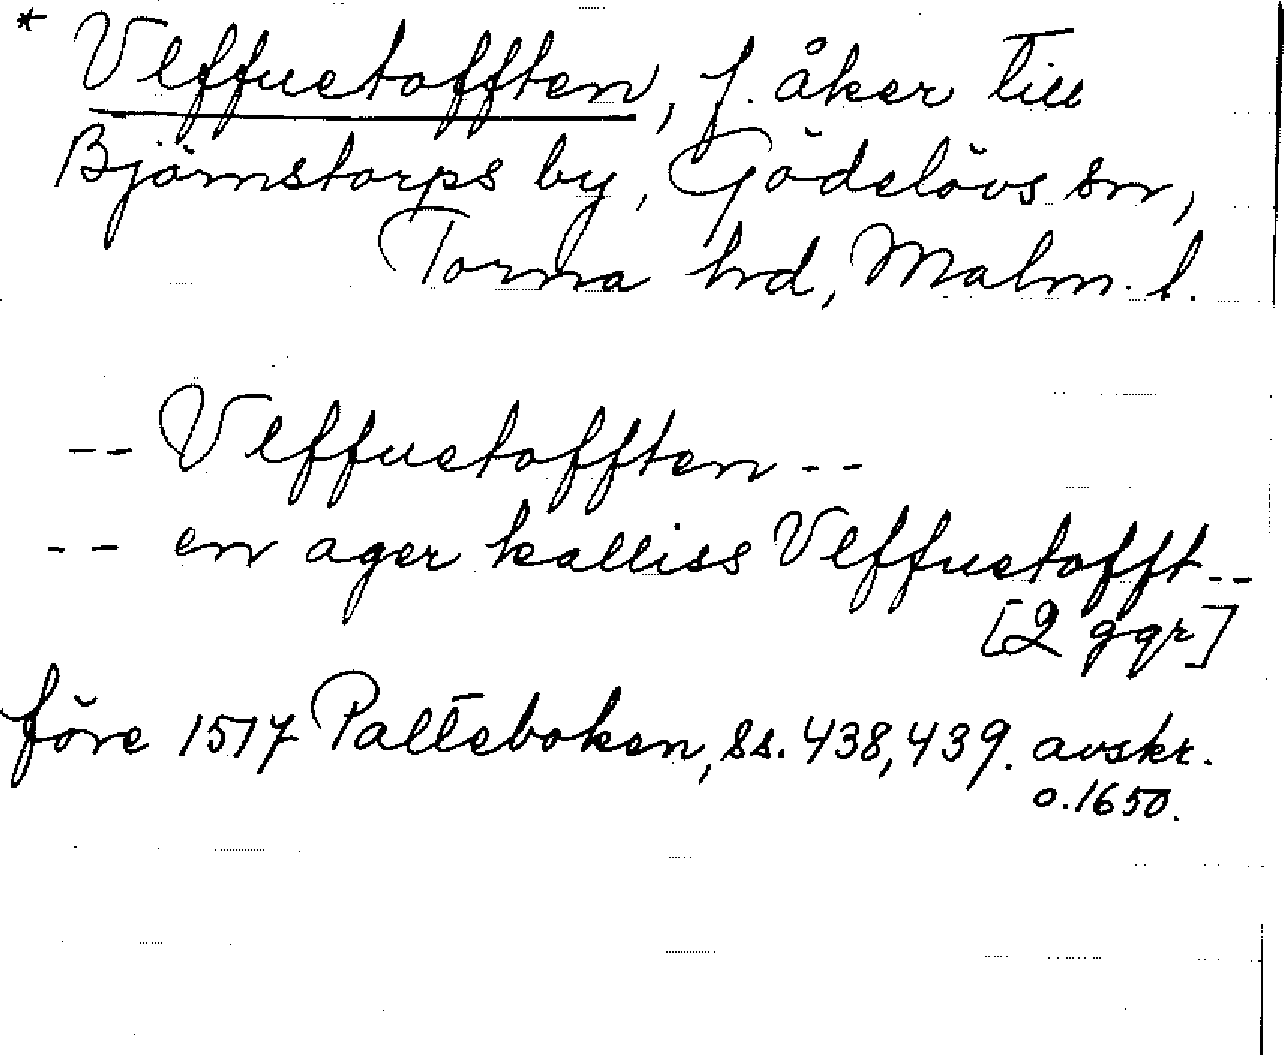 * Vlffuetofften, f. åker till
Björnstorps by, Gödelövs sn,
Torna hrd, Malm. l.
-- Vlffuetofften --
-- en ager kalliss Vlffuetofft --
[2 ggr]
före 1517 Palteboken, ss. 438, 439. avskr.
o. 1650.